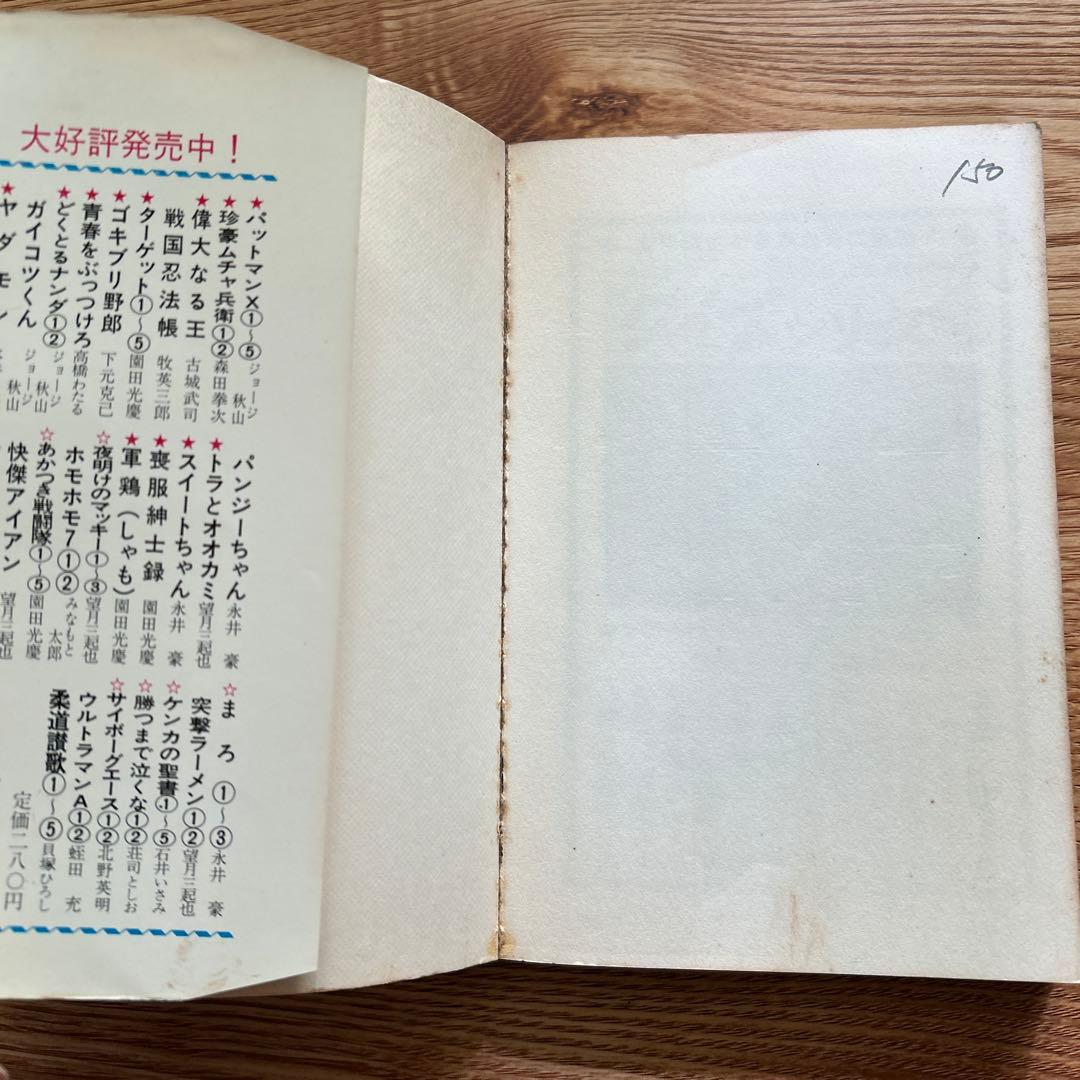 大好評発売中！
★バットマンX①〜⑤ジョージ秋山
★珍豪ムチャ兵衛①②森田拳次
★偉大なる王 古城武司
戦国忍法帳 牧英三郎
★ターゲット①〜⑤園田光慶
★ゴキブリ野郎 下元克己
★青春をぶっつけろ 高橋わたる
★どくとるナンダ①②ジョージ秋山
ガイコツくん ジョージ秋山
★ヤダモン
パンジーちゃん 永井豪
★トラとオオカミ 望月三起也
★スイートちゃん 永井豪
★喪服紳士録 園田光慶
★軍鶏（しゃも） 園田光慶
☆夜明けのマッキー①〜③望月三起也
ホモホモ7①②みなもと太郎
☆あかつき戦闘隊①〜⑤園田光慶
快傑アイアン 望月三起也
☆まろ①〜③永井豪
突撃ラーメン①②望月三起也
☆ケンカの聖書①〜⑤石井いさみ
☆勝つまで泣くな①②荘司としお
☆サイボーグエース①②北野英明
ウルトラマンA①②蛭田充
柔道讃歌①〜⑤貝塚ひろし
定価二八〇円
150